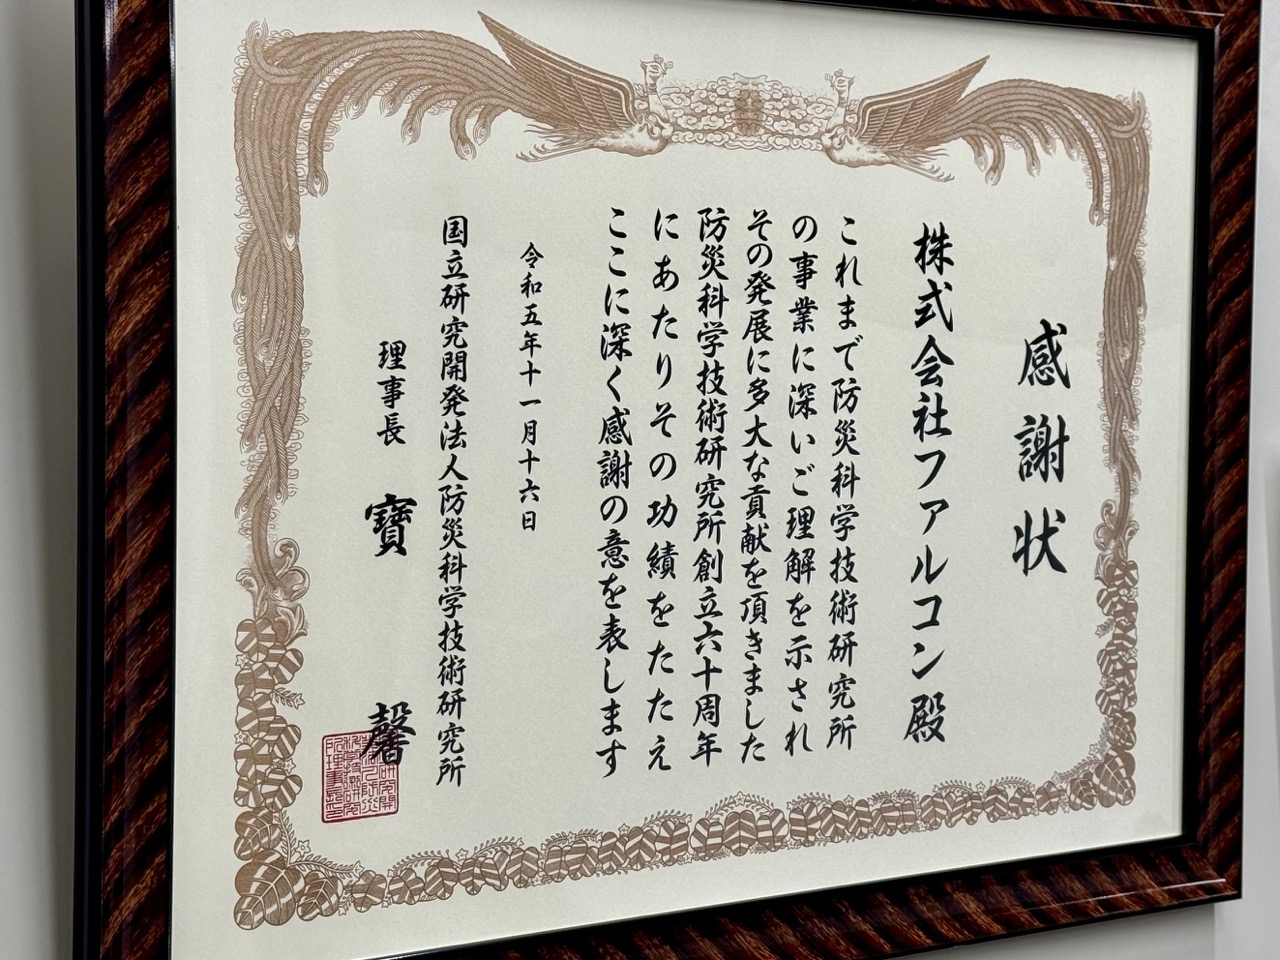 感謝状
株式会社ファルコン殿
これまで防災科学技術研究所
の事業に深いご理解を示され
その発展に多大な貢献を頂きました
防災科学技術研究所創立六十周年
にあたりその功績をたたえ
ここに深く感謝の意を表します
令和五年十一月十六日
国立研究開発法人防災科学技術研究所
理事長 寶 馨